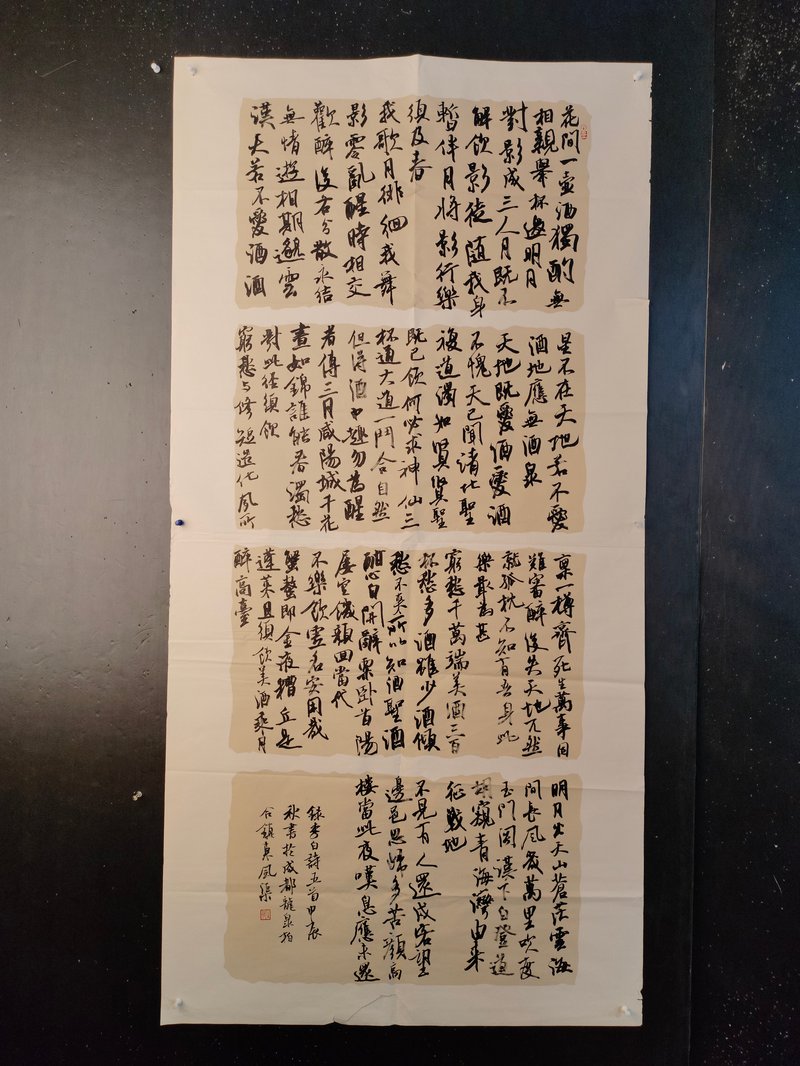 花間一壺酒獨酌無
相親舉杯邀明月
對影成三人月既不
解飲影徒隨我身
暫伴月將影行樂
須及春
我歌月徘徊我舞
影零亂醒時相交
歡醉後各分散永結
無情遊相期邈雲
漢天若不愛酒酒
星不在天地若不愛
酒地應無酒泉
天地既愛酒愛酒
不愧天已聞清比聖
複道濁如賢賢聖
既已飲何必求神仙三
杯通大道一鬥合自然
但得酒中趣勿為醒
者傳三月咸陽城千花
晝如錦誰能春濁愁
對此徑須飲
窮愁與修短造化夙所
稟一樽齊死生萬事固
難審醉後失天地兀然
就孤枕不知有吾身此
樂最為甚
窮愁千萬端美酒三百
杯愁多酒雖少酒傾
愁不來所以知酒聖酒
酣心自開辭粟臥首陽
屢空飢顏回當代
不樂飲虛名安用哉
蟹螯即金液糟丘是
蓬萊且須飲美酒乘月
醉高臺
明月出天山蒼茫雲海
間長風幾萬里吹度
玉門關漢下白登道
胡窺青海灣由來
征戰地
不見有人還戍客望
邊邑思歸多苦顏高
樓當此夜嘆息應未還
錄李白詩五首甲辰
秋書於成都龍泉柏
合鎮東風渠